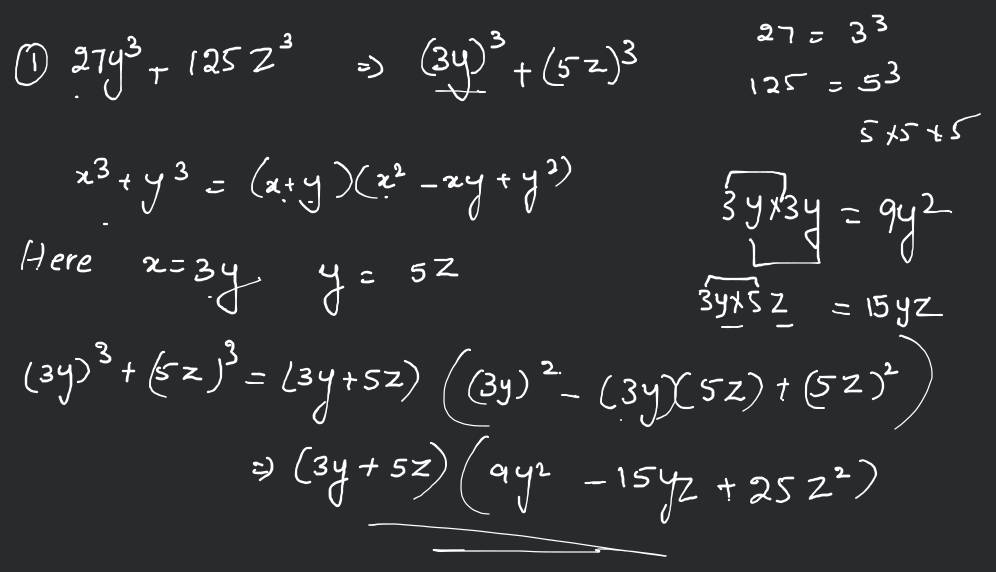 ① 27y³ + 125z³ ⇒ (3y)³ + (5z)³
27 = 3³
125 = 5³
5×5×5
x³ + y³ = (x+y)(x² - xy + y²)
3y×3y = 9y²
Here x = 3y y = 5z
3y×5z = 15yz
(3y)³ + (5z)³ = (3y+5z) ((3y)² - (3y)(5z) + (5z)²)
⇒ (3y + 5z) (9y² - 15yz + 25z²)